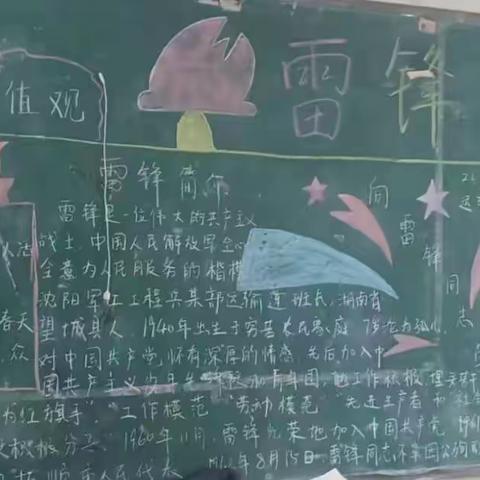 雷锋
值观
雷锋简介
向雷锋同志
雷锋是一位伟大的共产主义
战士,中国人民解放军全心
全意为人民服务的楷模
沈阳军工工程兵某部运输连班长,湖南省
望城县人 1940年出生于穷苦农民家庭
对中国共产党怀有深厚的情感 先后加入中
国共产主义 青年团,他工作积极
为红旗手" "工作模范" "劳动模范" "先进生产者和社会
积极分 1960年11月,雷锋光荣地加入中国共产党 1961
8月15日 雷锋同志不幸因公殉
春天
众